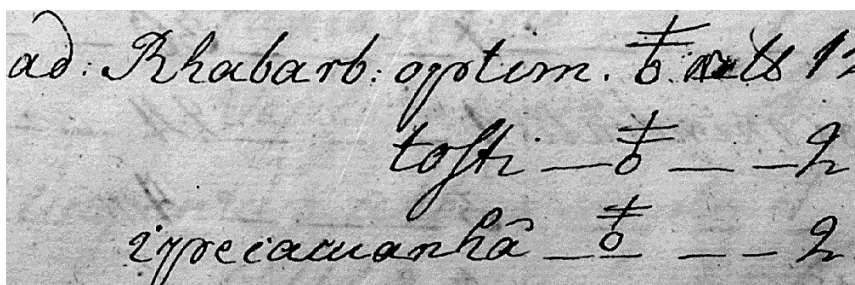 ad: Rhabarb: optim. ℔ 12
tosti — ℔ — — 2
ypecacuanhâ — ℔ — — 2